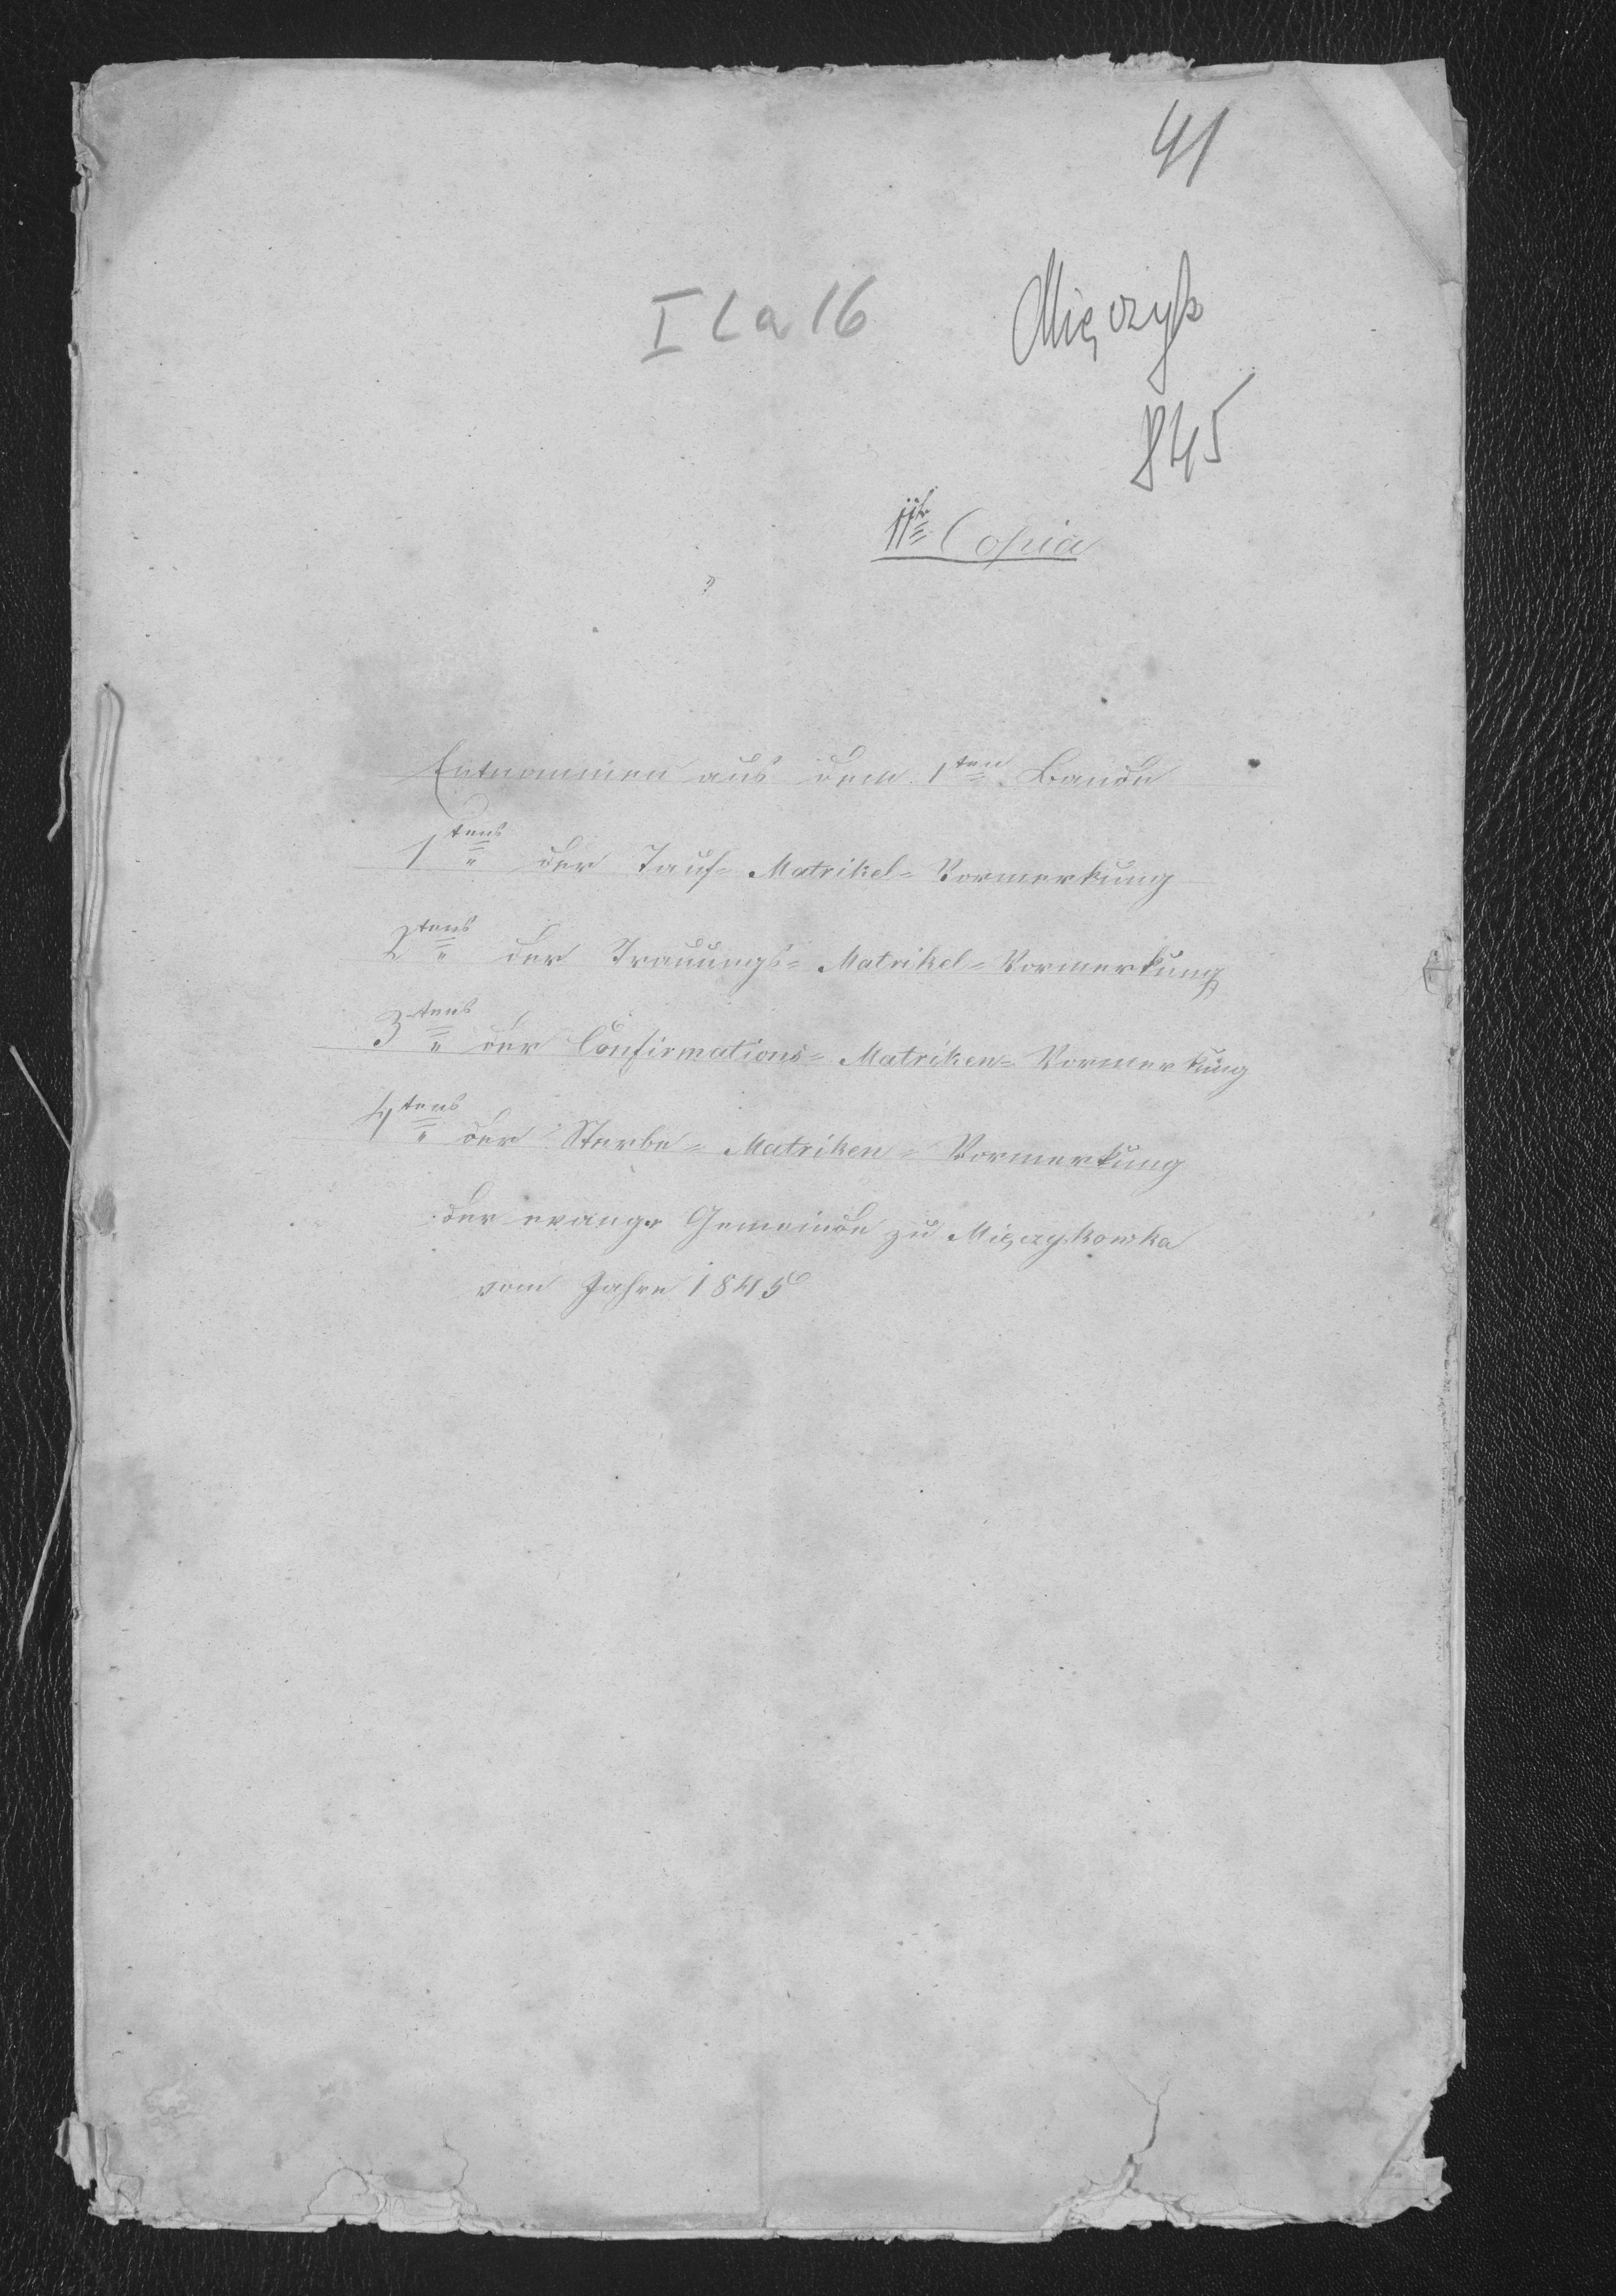 41
I L a 16
Mięczyk
845
IIte Copia
Entnommen aus dem 1ten Bande
1tens der Tauf- Matrikel- Vormerkung
2tens der Trauungs- Matrikel- Vormerkung
3tens der Confirmations- Matriken- Vormerkung
4tens der Sterbe- Matriken- Vormerkung
der evangr Gemeinde zu Mięczykowka
vom Jahre 1845